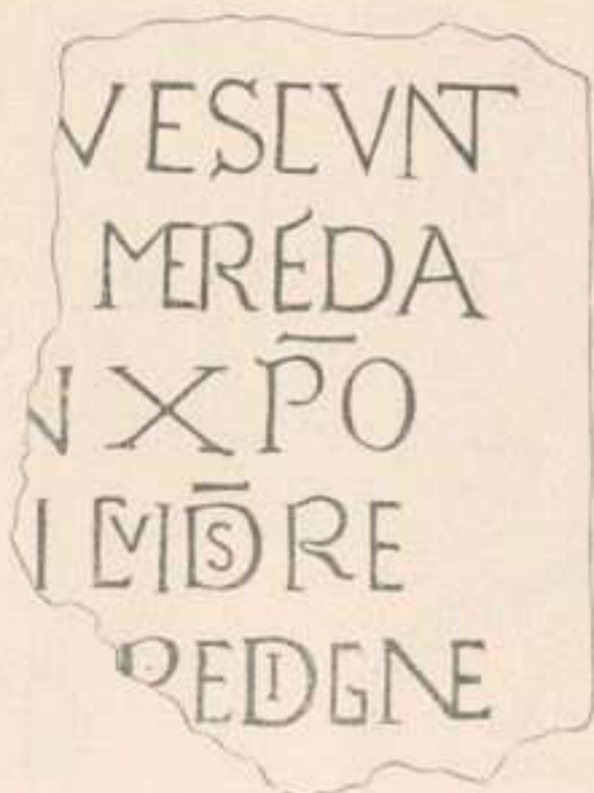 VESCVNT
MERÉDA
N XP̄O
I CVI D̄S RE
PEDIGNE